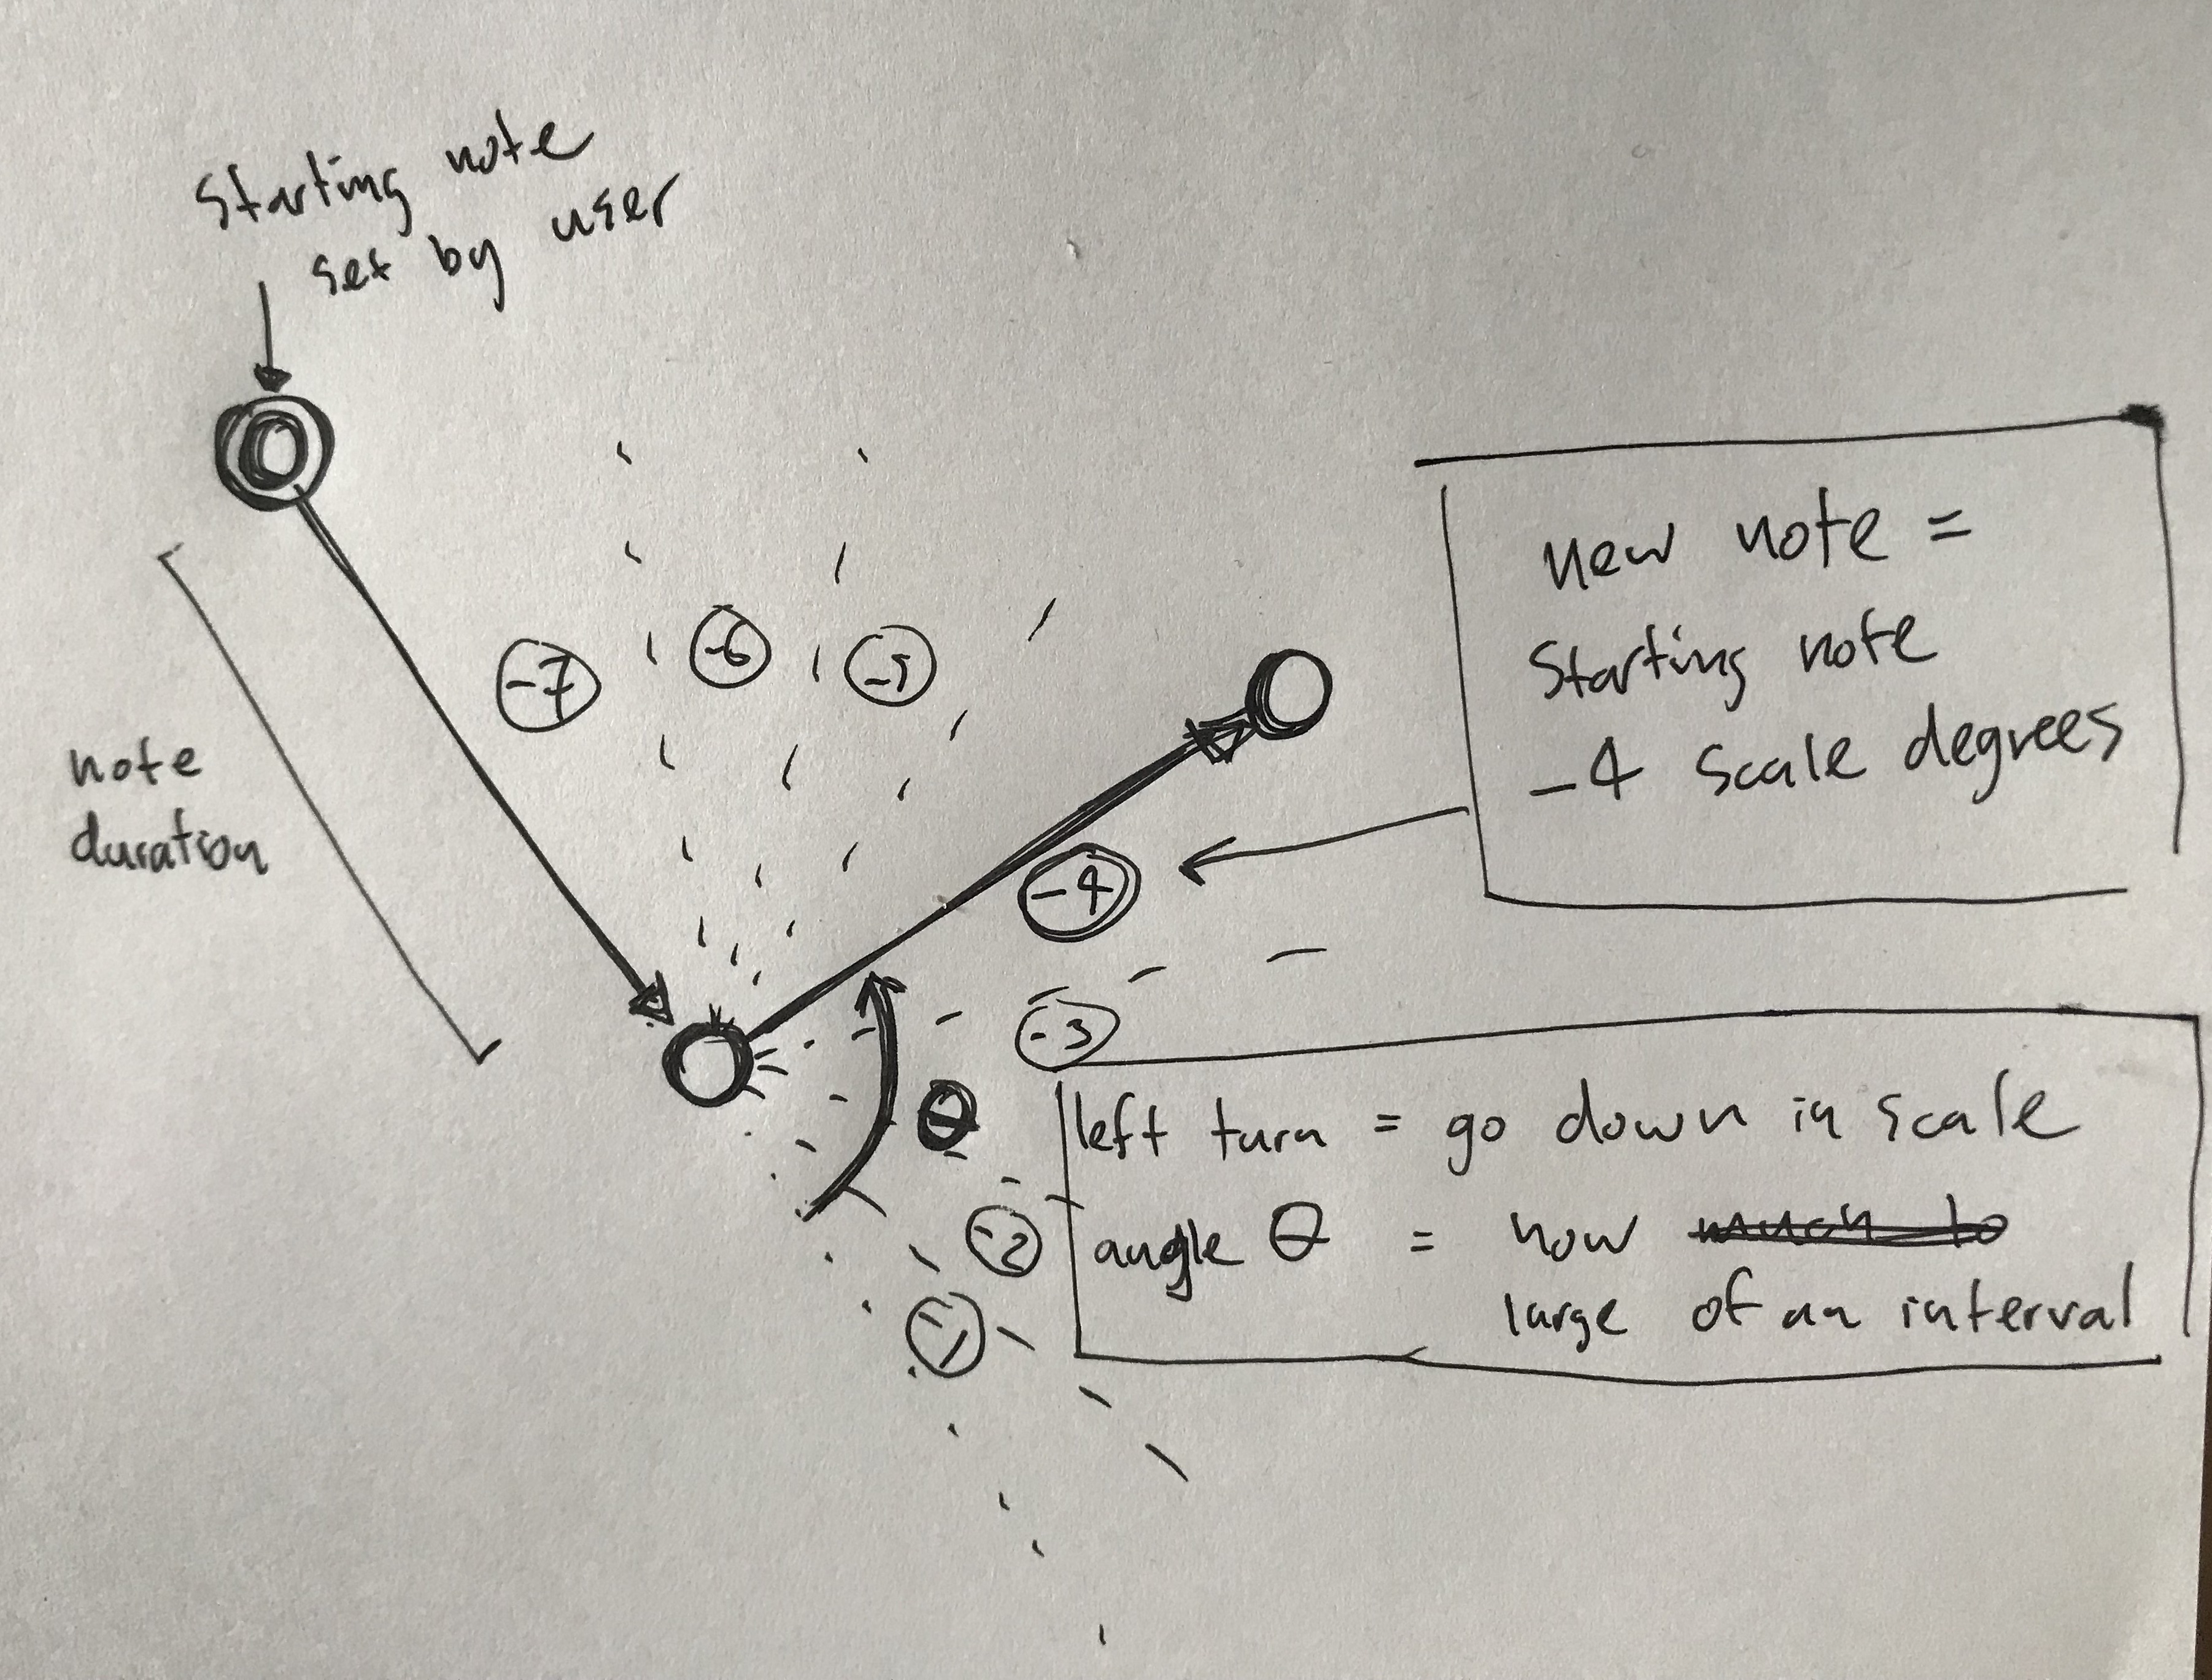 Starting note
set by user
note
duration
-7
-6
-5
-4
-3
-2
-1
θ
new note =
Starting note
-4 scale degrees
left turn = go down in scale
angle θ = how much to
large of an interval